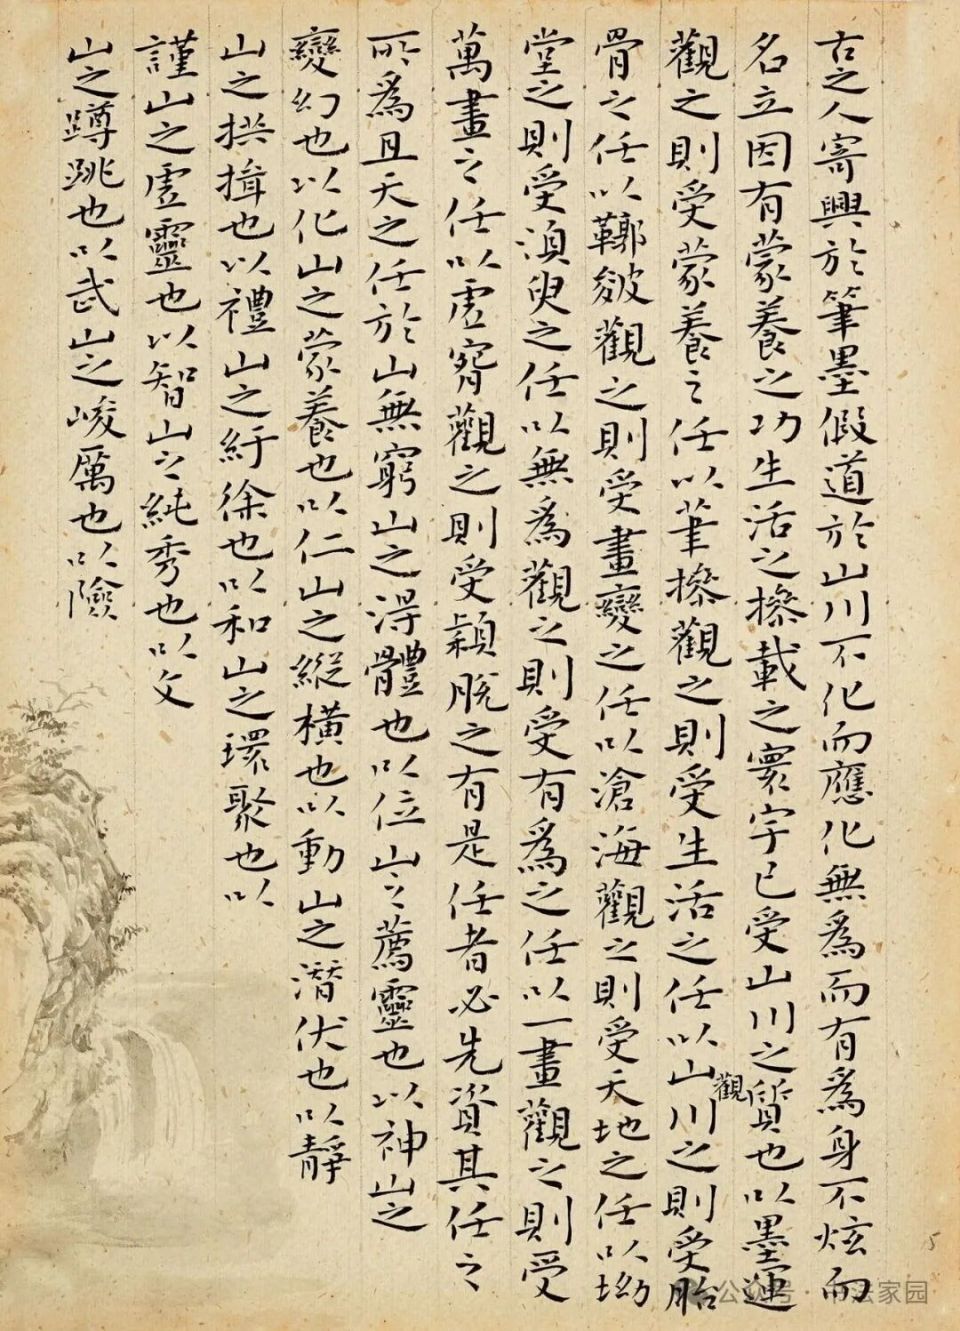 古之人寄興於筆墨假道於山川不化而應化無為而有為身不炫而
名立因有蒙養之功生活之操載之寰宇已受山川之質也以墨運
觀之則受蒙養之任以筆操觀之則受生活之任以山川觀之則受胎
骨之任以鞹皴觀之則受畫變之任以滄海觀之則受天地之任以坳
堂之則受湏臾之任以無為觀之則受有為之任以一畫觀之則受
萬畫之任以虛窅觀之則受穎脫之有是任者必先資其任之
所為且天之任於山無窮山之淂體也以位山之薦靈也以神山之
變幻也以化山之蒙養也以仁山之縱橫也以動山之潛伏也以靜
山之拱揖也以禮山之紆徐也以和山之環聚也以
謹山之虛靈也以智山之純秀也以文
山之蹲跳也以武山之峻厲也以險
5
公众号·书法家园